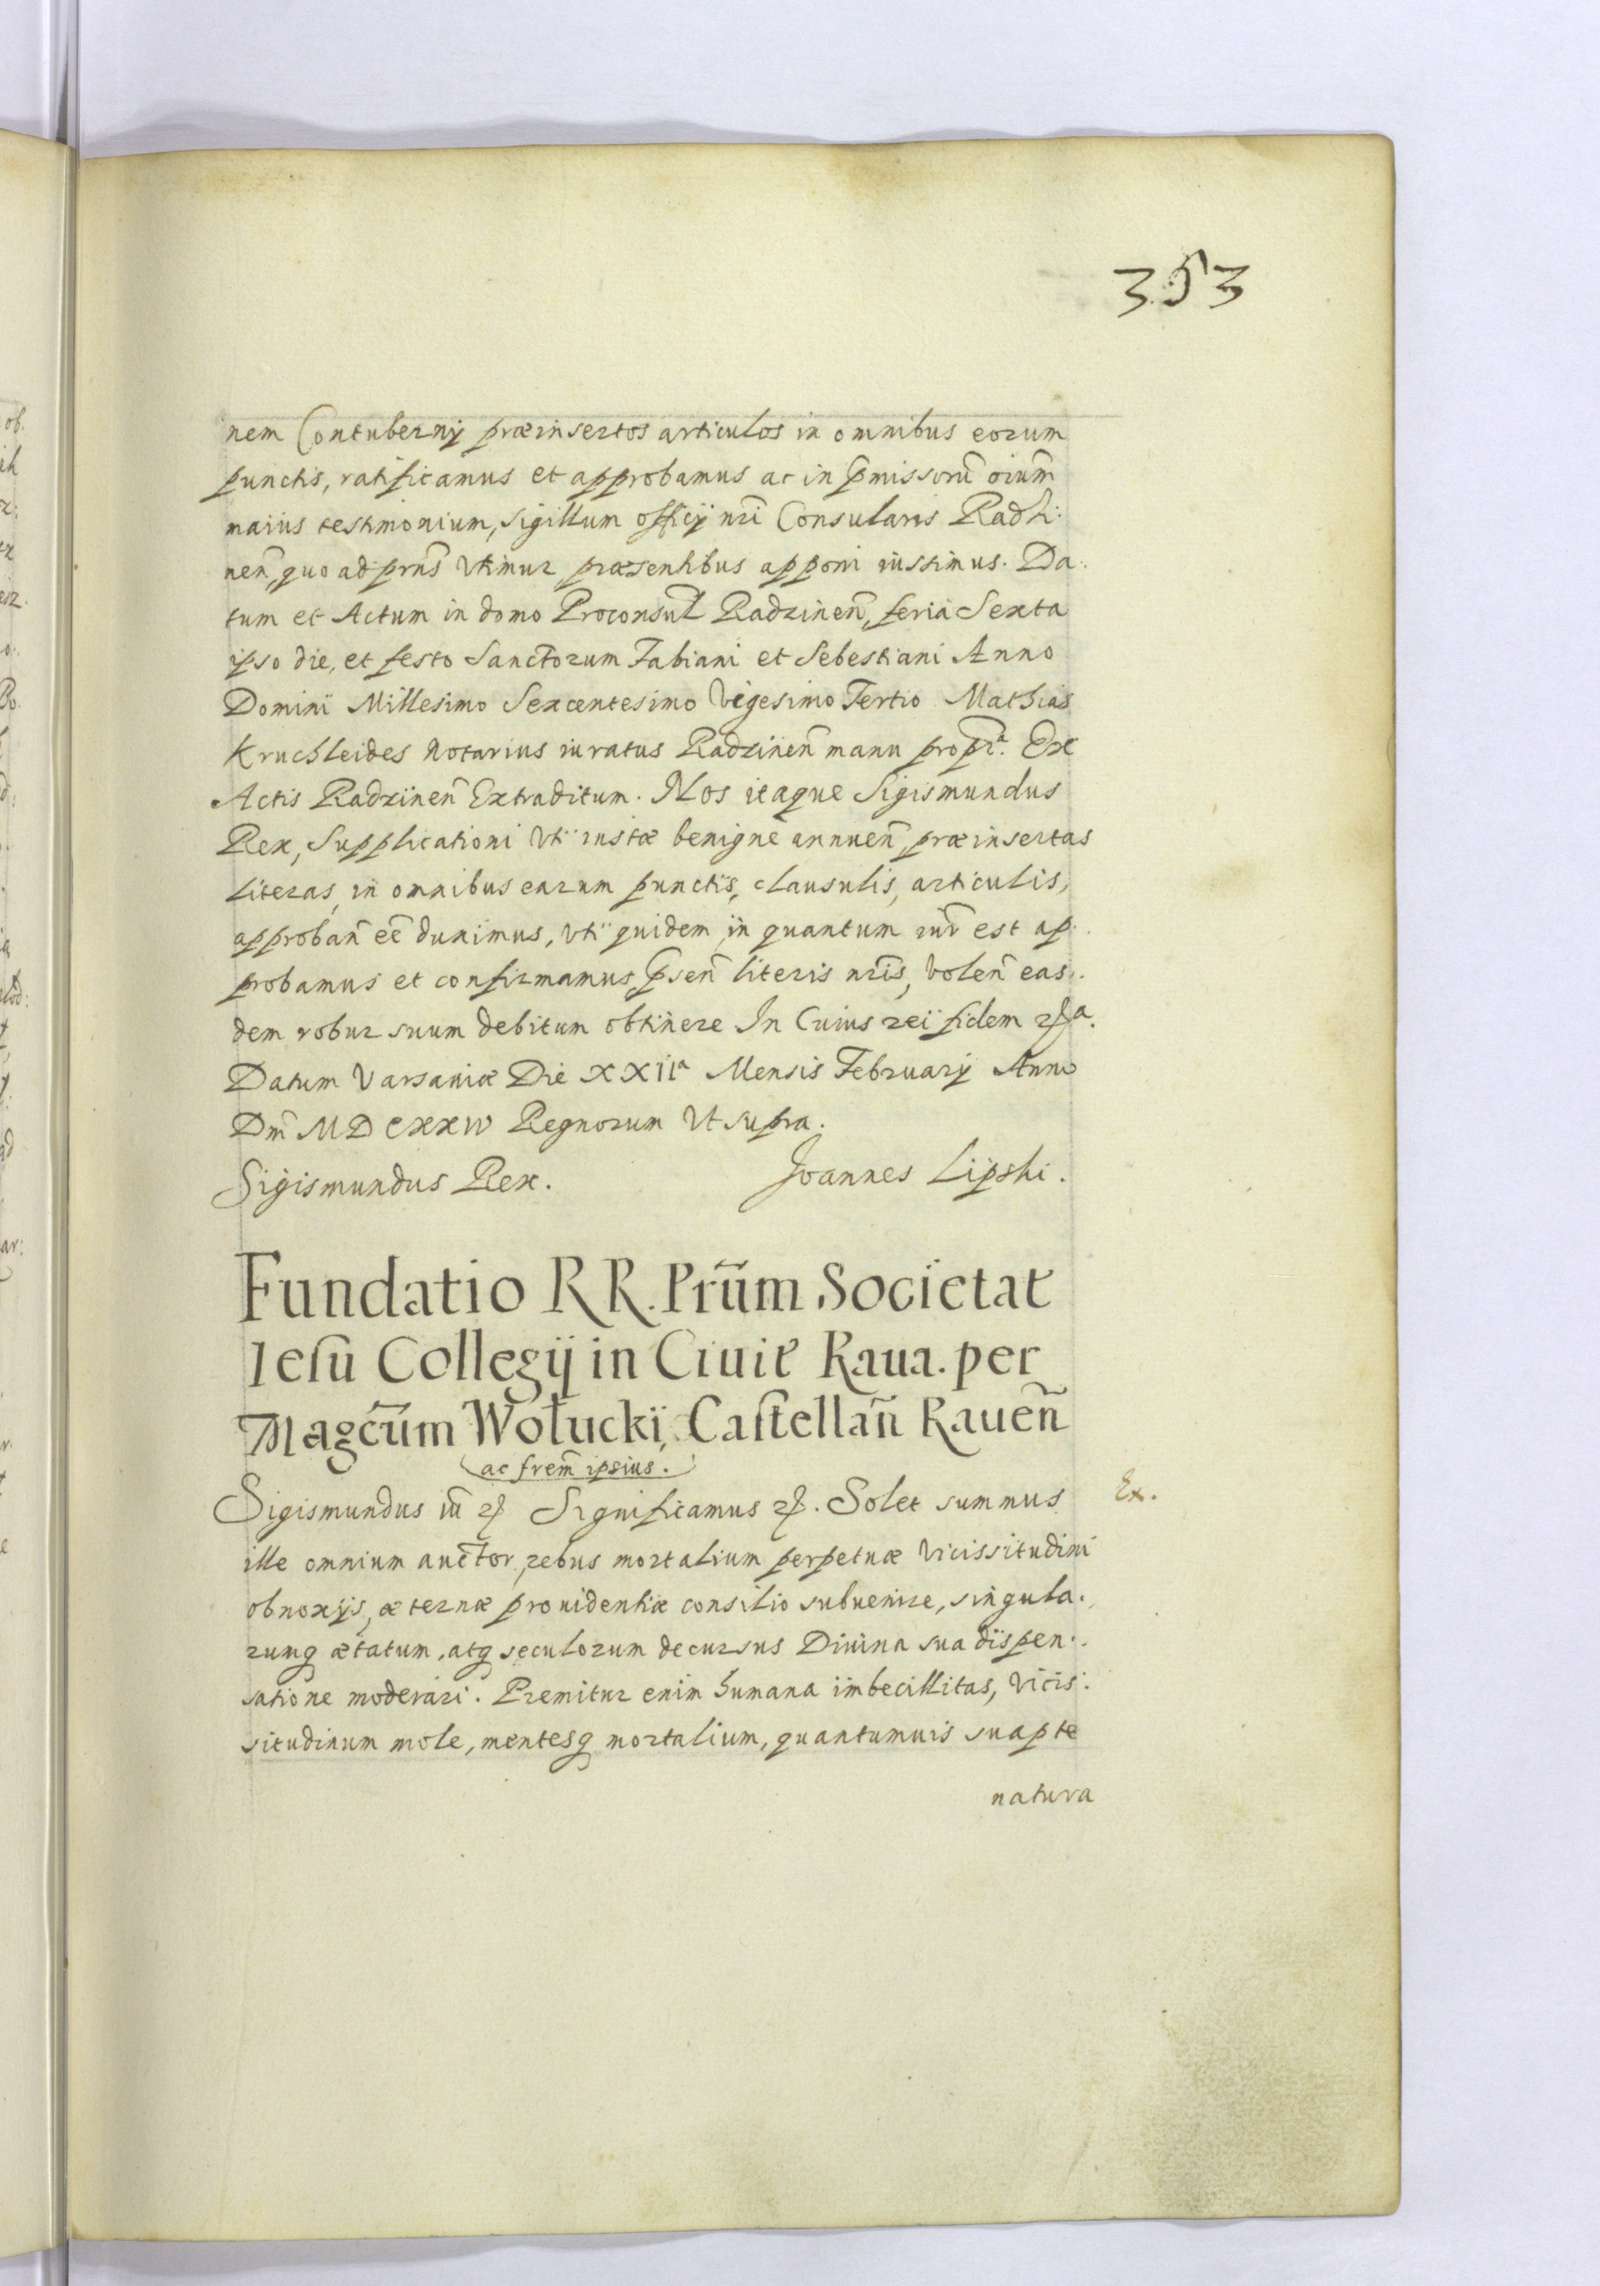 353
nem Contubernij præinsertos articulos in omnibus eorum
punctis, ratificamus et approbamus ac in p̃missorũ oiũm
maius testimonium, sigillum officij nr̃i Consularis Radzi:
neñ, quo ad prns̃ vtimur præsentibus apponi iussimus. Da:
tum et Actum in domo Proconsul̃ Radzineñ, feria Sexta
ipso die, et festo Sanctorum Fabiani et Sebestiani Anno
Domini Millesimo Sexcentesimo Vigesimo Tertio Mathias
Kruchleides Notarius iuratus Radzineñ manu proprã. Ex
Actis Radzineñ Extraditum. Nos itaque Sigismundus
Rex, Supplicationi vti iustæ benigne annueñ, præinsertas
literas, in omnibus earum punctis, clausulis, articulis,
approbañ eẽ duximus, vti quidem in quantum iur̃ est ap:
probamus et confirmamus, p̃señ literis nr̃is, voleñ eas:
dem robur suum debitum obtinere In Cuius rei fidem ꝛꝭa.
Datum Varsaviæ Die XXIIa Mensis February Anno
Dm̃ MDCXXIV Regnorum Vt supra.
Sigismundus Rex. Joannes Lipski.
Fundatio RR. Prũm Societat
Iesu Collegij in Ciuit Raua. per
Magcũm Wołucki, Castellañ Raueñ
ac frem̃ ipsius.
Sigismundus iii̇ ꝛꝭ Significamus ꝛꝭ. Solet summus Ex.
ille omnium auctor, rebus mortalium perpetuæ vicissitudini
obnoxijs, æternæ prouidentiæ consilio subuenire, singula:
rumq ætatum, atq seculorum decursus Diuina sua dispen:
satione moderari. Premitur enim humana imbecillitas, vicis:
situdinum mole, mentesq mortalium, quantumuis suapte
natura